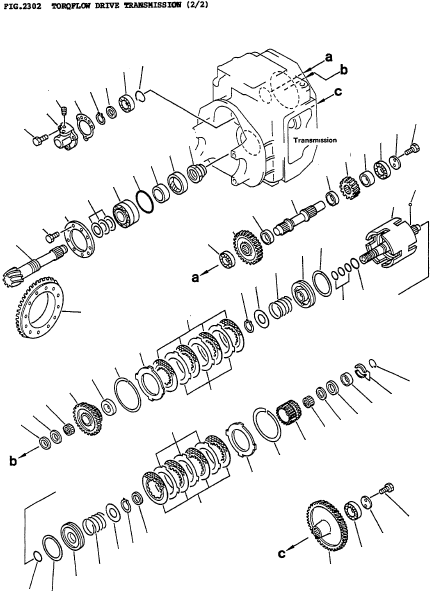 FIG.2302 TORQFLOW DRIVE TRANSMISSION (2/2)
a
b
c
Transmission
a
b
c